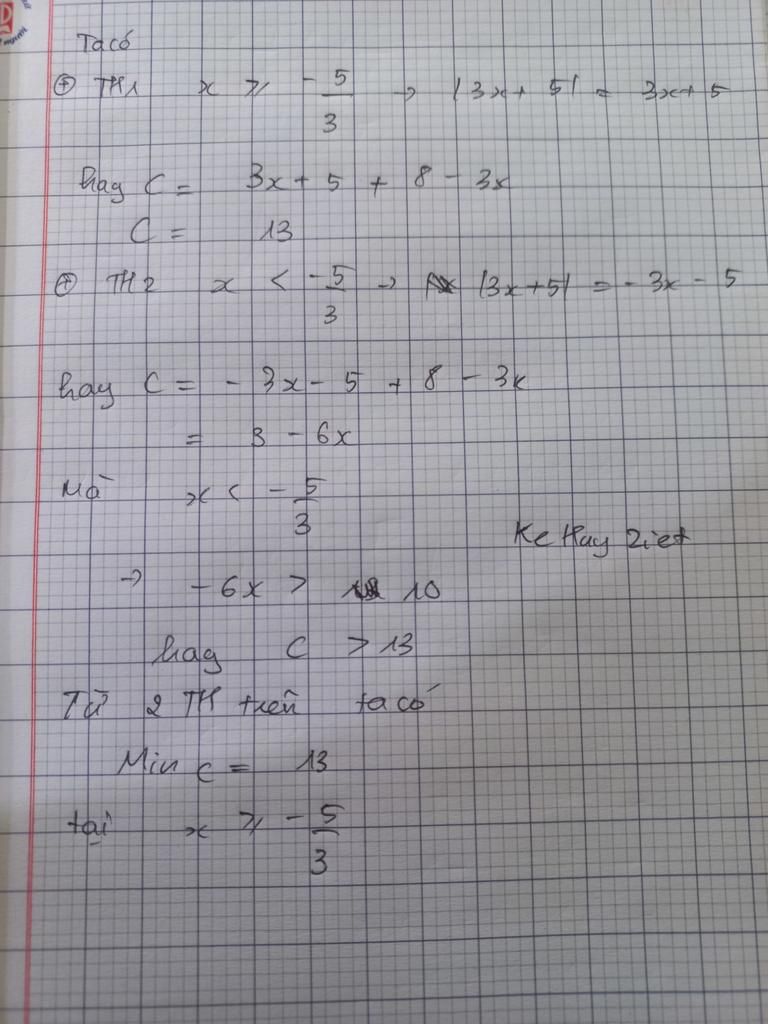 Ta có
⊕ TH1 x ⩾ -5/3 → |3x + 5| = 3x + 5
hay C = 3x + 5 + 8 - 3x
C = 13
⊕ TH2 x < -5/3 → |3x + 5| = - 3x - 5
hay C = - 3x - 5 + 8 - 3x
= 3 - 6x
Mà x < -5/3
Ke Huy Ziet
→ - 6x > 10
hay C > 13
Từ 2 TH trên ta có
Min C = 13
tại x ⩾ -5/3